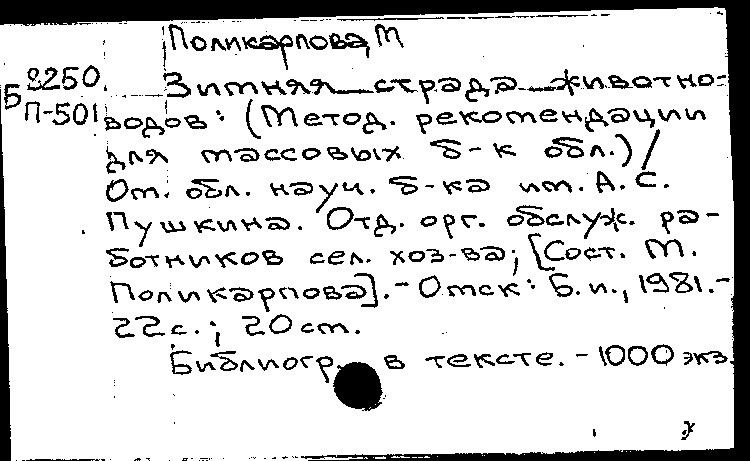 Поликарпова, М
Б 8250. Зимняя страда животно-
П-501 водов: (Метод. рекомендации
для массовых б-к обл.)/
Ом. обл. науч. б-ка им. А. С.
Пушкина. Отд. орг. обслуж. ра-
ботников сел. хоз-ва; [Сост. М.
Поликарпова]. - Омск: Б. и., 1981. -
22 с.; 20 см.
Библиогр. в тексте. - 1000 экз.